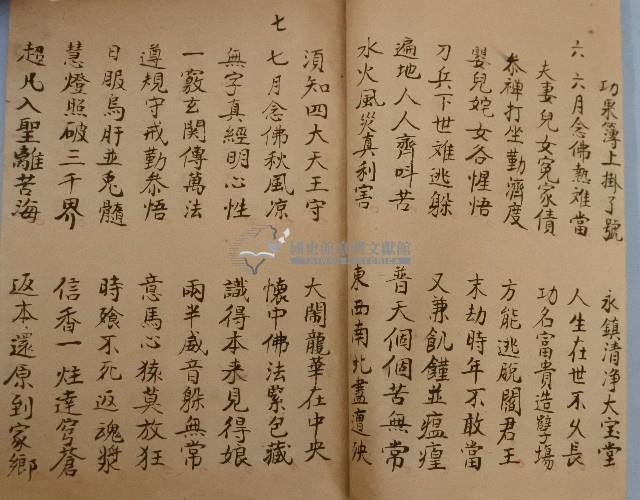 功果簿上掛了號　永鎮清淨大宝堂
六　六月念佛熱难當　人生在世不久長
夫妻兒女冤家債　功名富貴造孽場
叅禅打坐勤濟度　方能逃脫閻君王
嬰兒姹女各惺悟　末劫時年不敢當
刀兵下世难逃躲　又兼飢饉並瘟瘽
遍地人人齊呌苦　普天個個苦無常
水火風災真利害　東西南北盡遭殃
須知四大天王守　大鬧龍華在中央
七　七月念佛秋風凉　懷中佛法緊包藏
無字真經明心性　識得本来見得娘
一竅玄関傳萬法　兩半威音躲無常
遵規守戒勤叅悟　意馬心猿莫放狂
日服烏肝並兎髓　時飱不死返魂漿
慧燈照破三千界　信香一炷達穹蒼
超凡入聖離苦海　返本還原到家鄉
國史館臺灣文獻館
TAIWAN HISTORICA